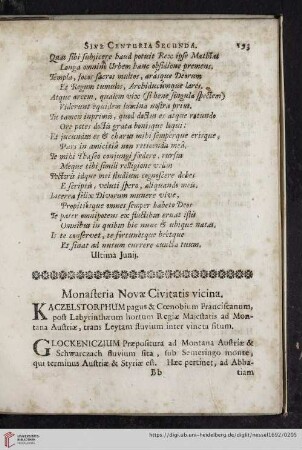 SIVE CENTURIA SECUNDA. 193
Quas sibi subjicere haud potuit Rex ipse Mathias
Longa omnem Urbem hanc obsidione premens,
Templa, focos sacros multos, arasque Deorum
Et Regum tumulos, Archiducumque lares,
Atque arcem, qualem vix (si bene singula spectem)
Viderunt equitum lumina nostra prius.
Tu tamen inprimis, quod doctus es atque rotundo
Ore potes docta grata bonisque loqui:
Et jucundus es & charus mihi semperque erisque,
Pars in amicitia non retinenda mea.
Te mihi Phaseo conjungi foedere, rursus
Meque tibi simili relligione vicem
Posteris idque mei studium cognoscere debes
E scriptis, veluti spero, aliquando meis.
Interea felix Divorum munere vive,
Propitiosque omnes semper habeto Deos
Te pater omnipotens ex fluctibus eruat istis
Omnibus in quibus hic nunc & ubique natas,
Is te conservet, te fortunetque bëetque
Et sinat ad nutum currere cuncta tuum.
Ultima Junij.
Monasteria Novæ Civitatis vicina.
KACZELSTORPHUM pagus & Cœnobium Franciscanum,
post Labyrinthæum hortum Regiæ Majestatis ad Mon-
tana Austriæ, trans Leytam fluvium inter vineta situm.
GLOCKENICZIUM Præpositura ad Montana Austriæ &
Schwarczach fluvium sita, sub Semeringo monte,
qui terminus Austriæ & Styriæ est. Hæc pertinet, ad Abba-
Bb tiam
UNIVERSITÄTS-
BIBLIOTHEK
HEIDELBERG
https://digi.ub.uni-heidelberg.de/diglit/nessel1692/0255